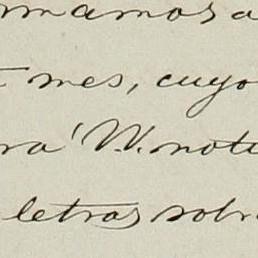 rmamos a
mes, cuyo
ra' W. noti
letras sobr